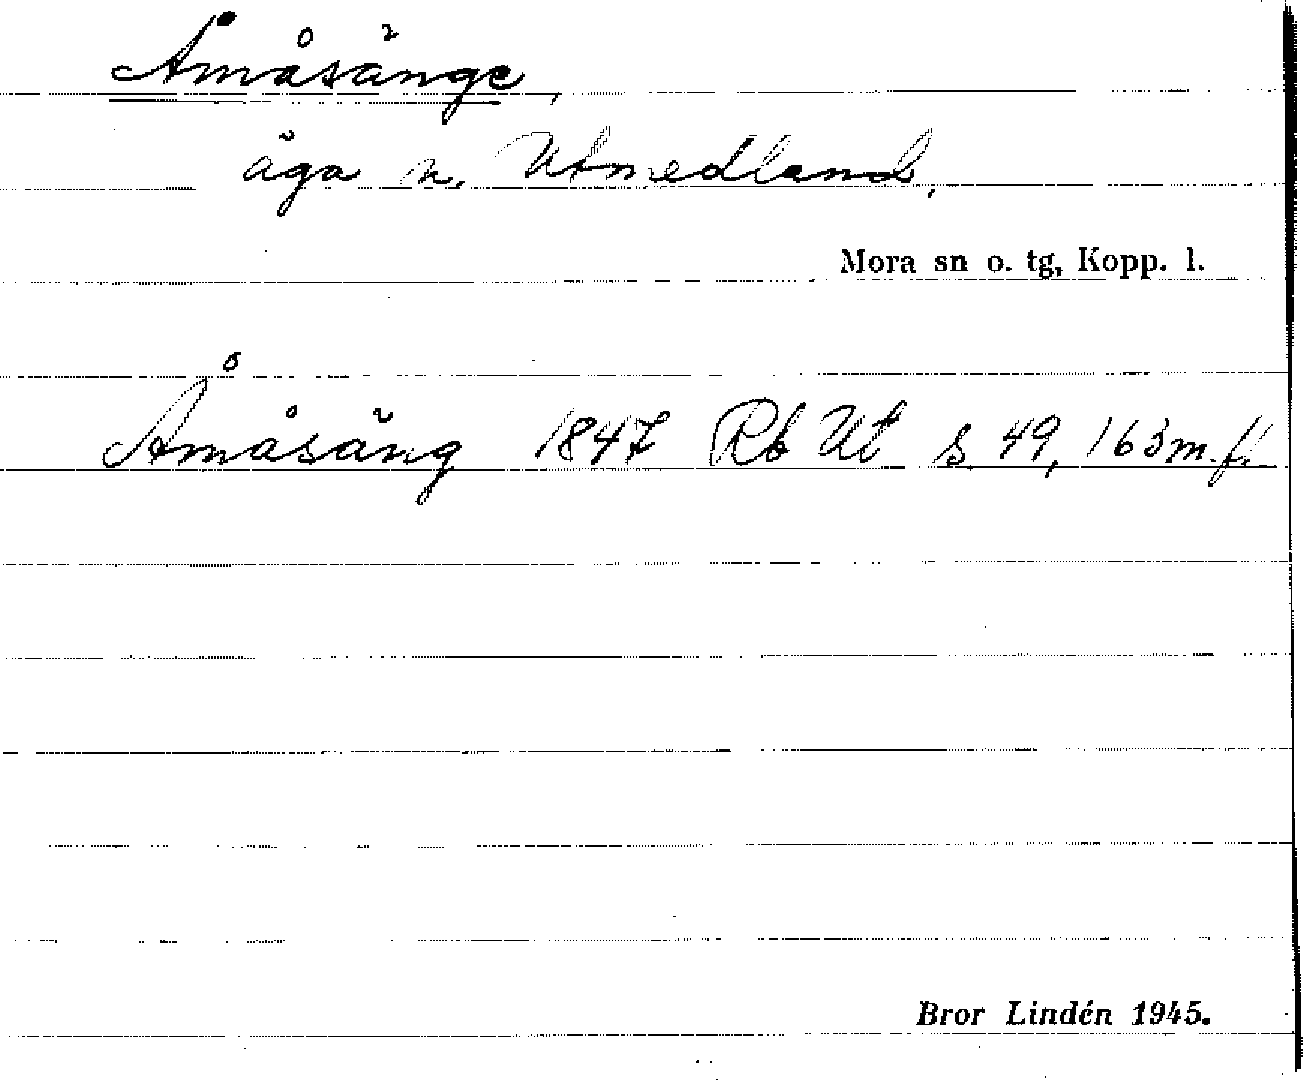 Åmåsänge,
äga n. Utmedland,
Mora sn o. tg, Kopp. l.
Åmåsäng 1847 Rb Ut s. 49, 163 m.fl.
Bror Lindén 1945.